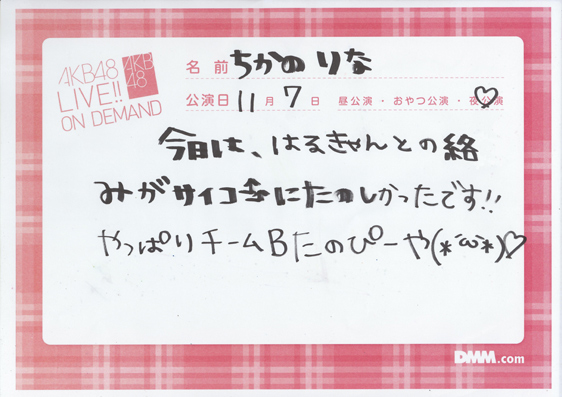 AKB48
LIVE!!
ON DEMAND
AKB
48
名前 ちかの りな
公演日 11月 7日 昼公演・おやつ公演・夜公演
今日は、はるきゃんとの絡
みがサイコーにたのしかったです!!
やっぱりチームBたのぴーや(*´ω`*)♡
DMM.com